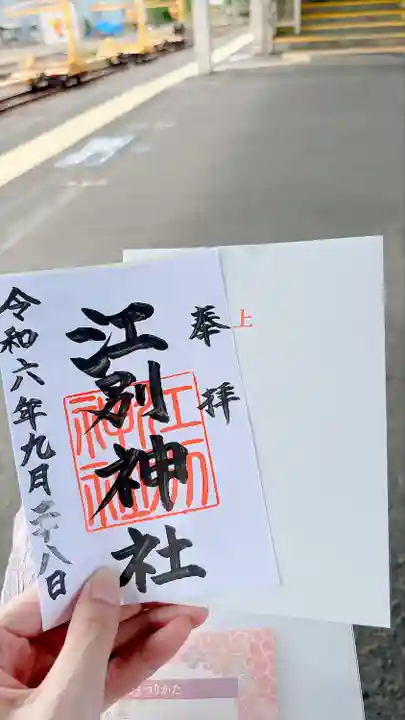 奉拝
江別神社
令和六年九月二十八日
江別神社
上
まつりかた